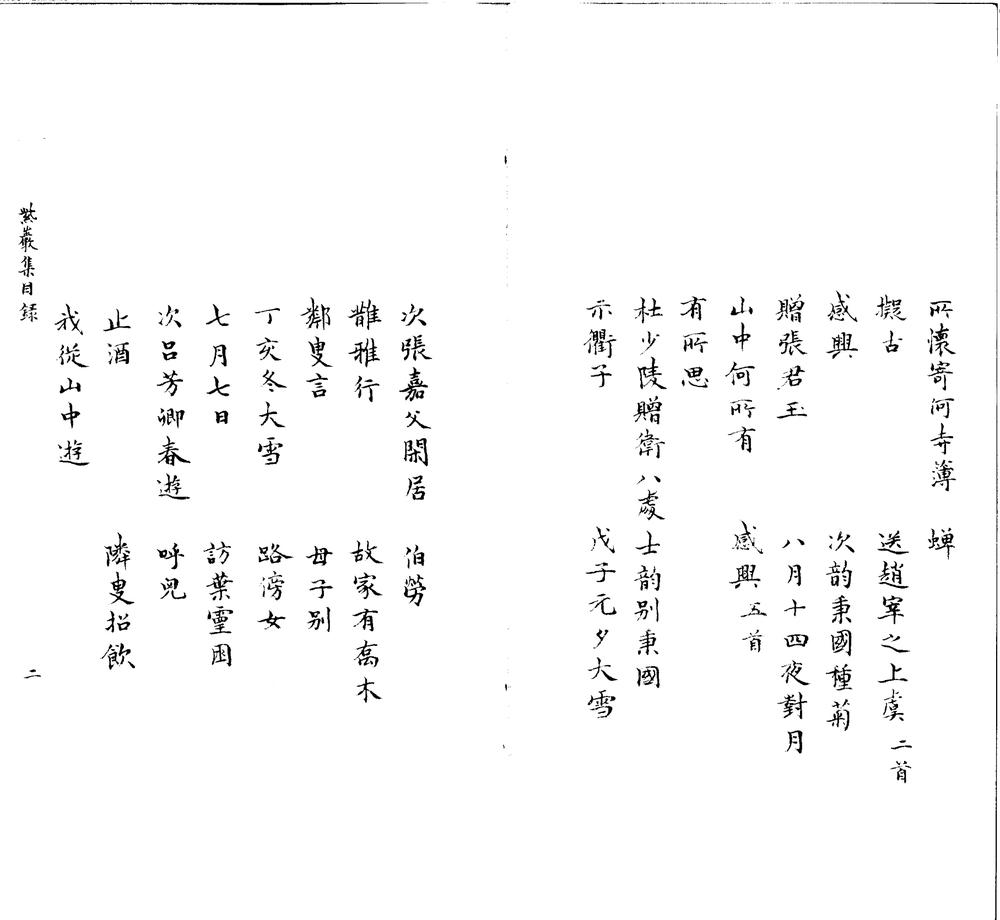 所懷寄何寺簿　蟬
擬古　送趙宰之上虞二首
感興　次韵秉國種菊
贈張君玉　八月十四夜對月
山中何所有　感興五首
有所思
杜少陵贈衛八處士韵别秉國
示衢子　戊子元夕大雪
次張嘉父閑居　伯勞
雛雅行　故家有喬木
鄰叟言　母子别
丁亥冬大雪　路滂女
七月七日　訪葉靈困
次吕芳卿春遊　呼兒
止酒　隣叟招飲
我從山中遊
紫巖集目録
二